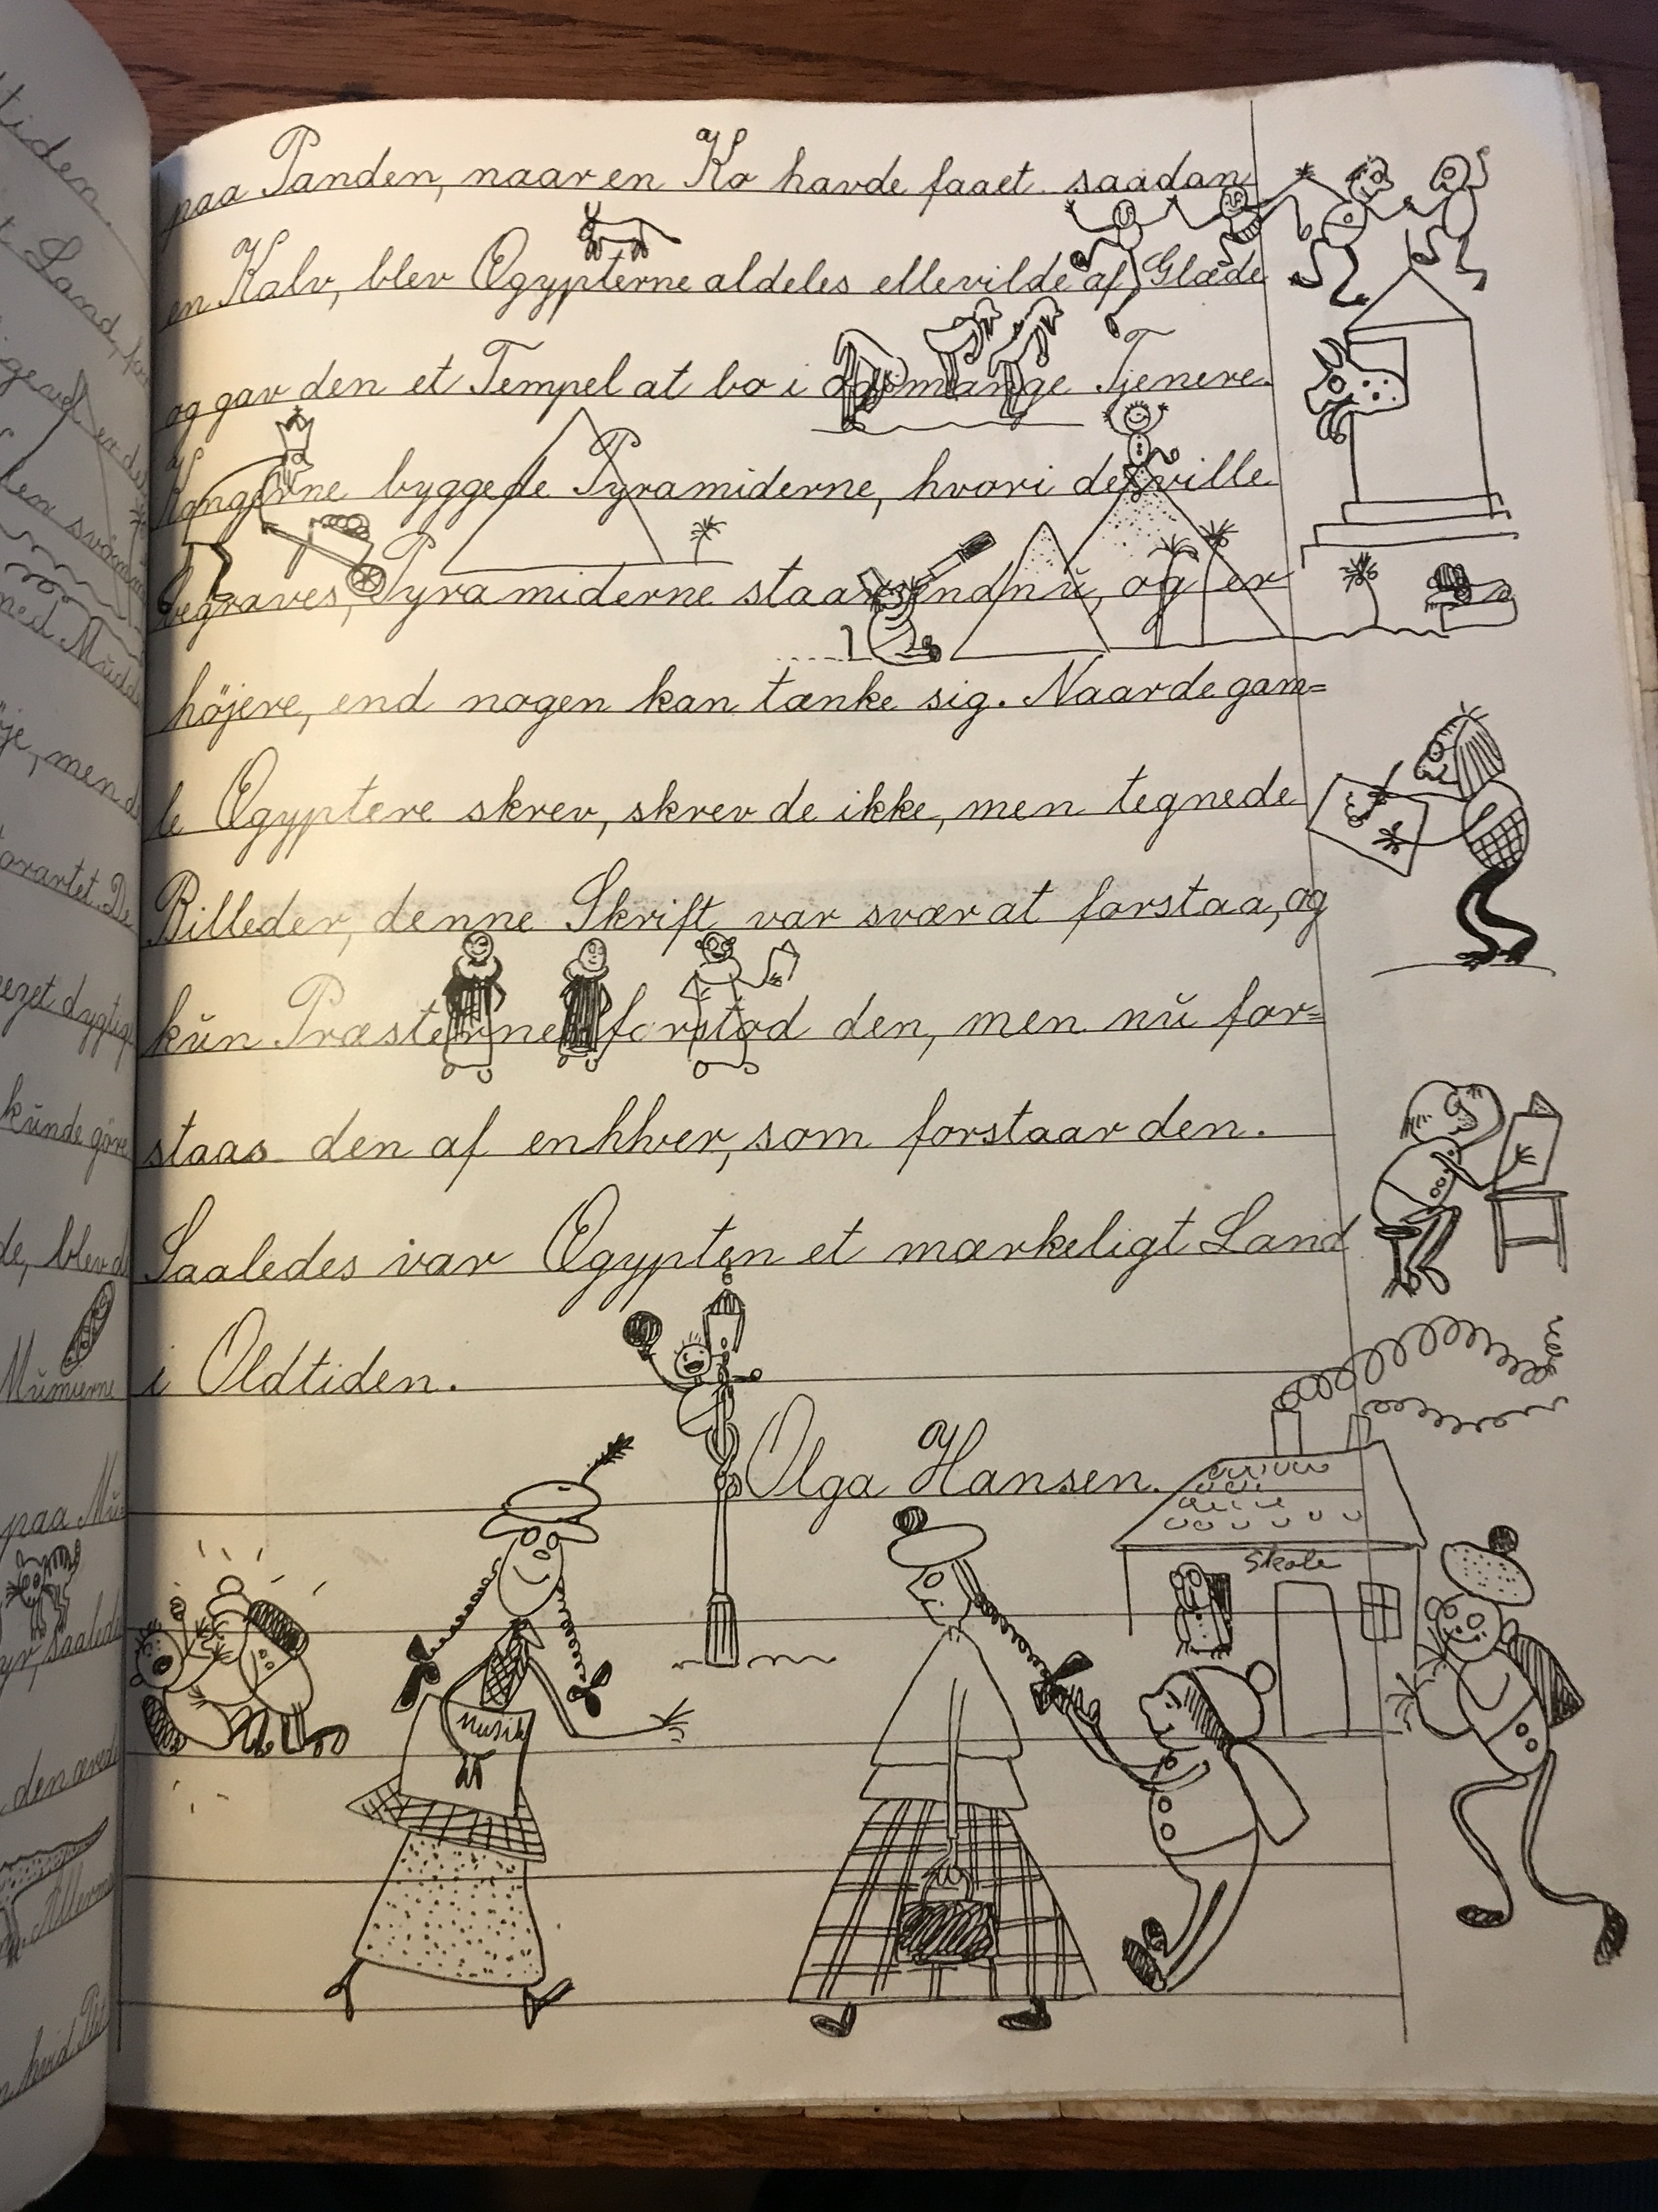 paa Panden, naar en Ko havde faaet saadan
en Kalv, blev Ægypterne aldeles ellevilde af Glæde
og gav den et Tempel at bo i og mange Tjenere.
Kongerne byggede Pyramiderne, hvori de ville
begraves, Pyramiderne staar endnŭ, og er
höjere, end nogen kan tænke sig. Naar de gam=
le Ægyptere skrev, skrev de ikke, men tegnede
Billeder, denne Skrift var svær at forstaa, og
kŭn Præsterne forstod den, men nŭ for=
staas den af enhhver, som forstaar den.
Saaledes var Ægypten et mærkeligt Land
i Oldtiden.
Olga Hansen.
Skole
Musik
tiden.
Land, for
ned Mŭdd
je, men d
orartet. De
kŭnde göre
de, blev d
Mŭmierne
paa Mŭ=
yr, saalede
den ære
n hvid Plet